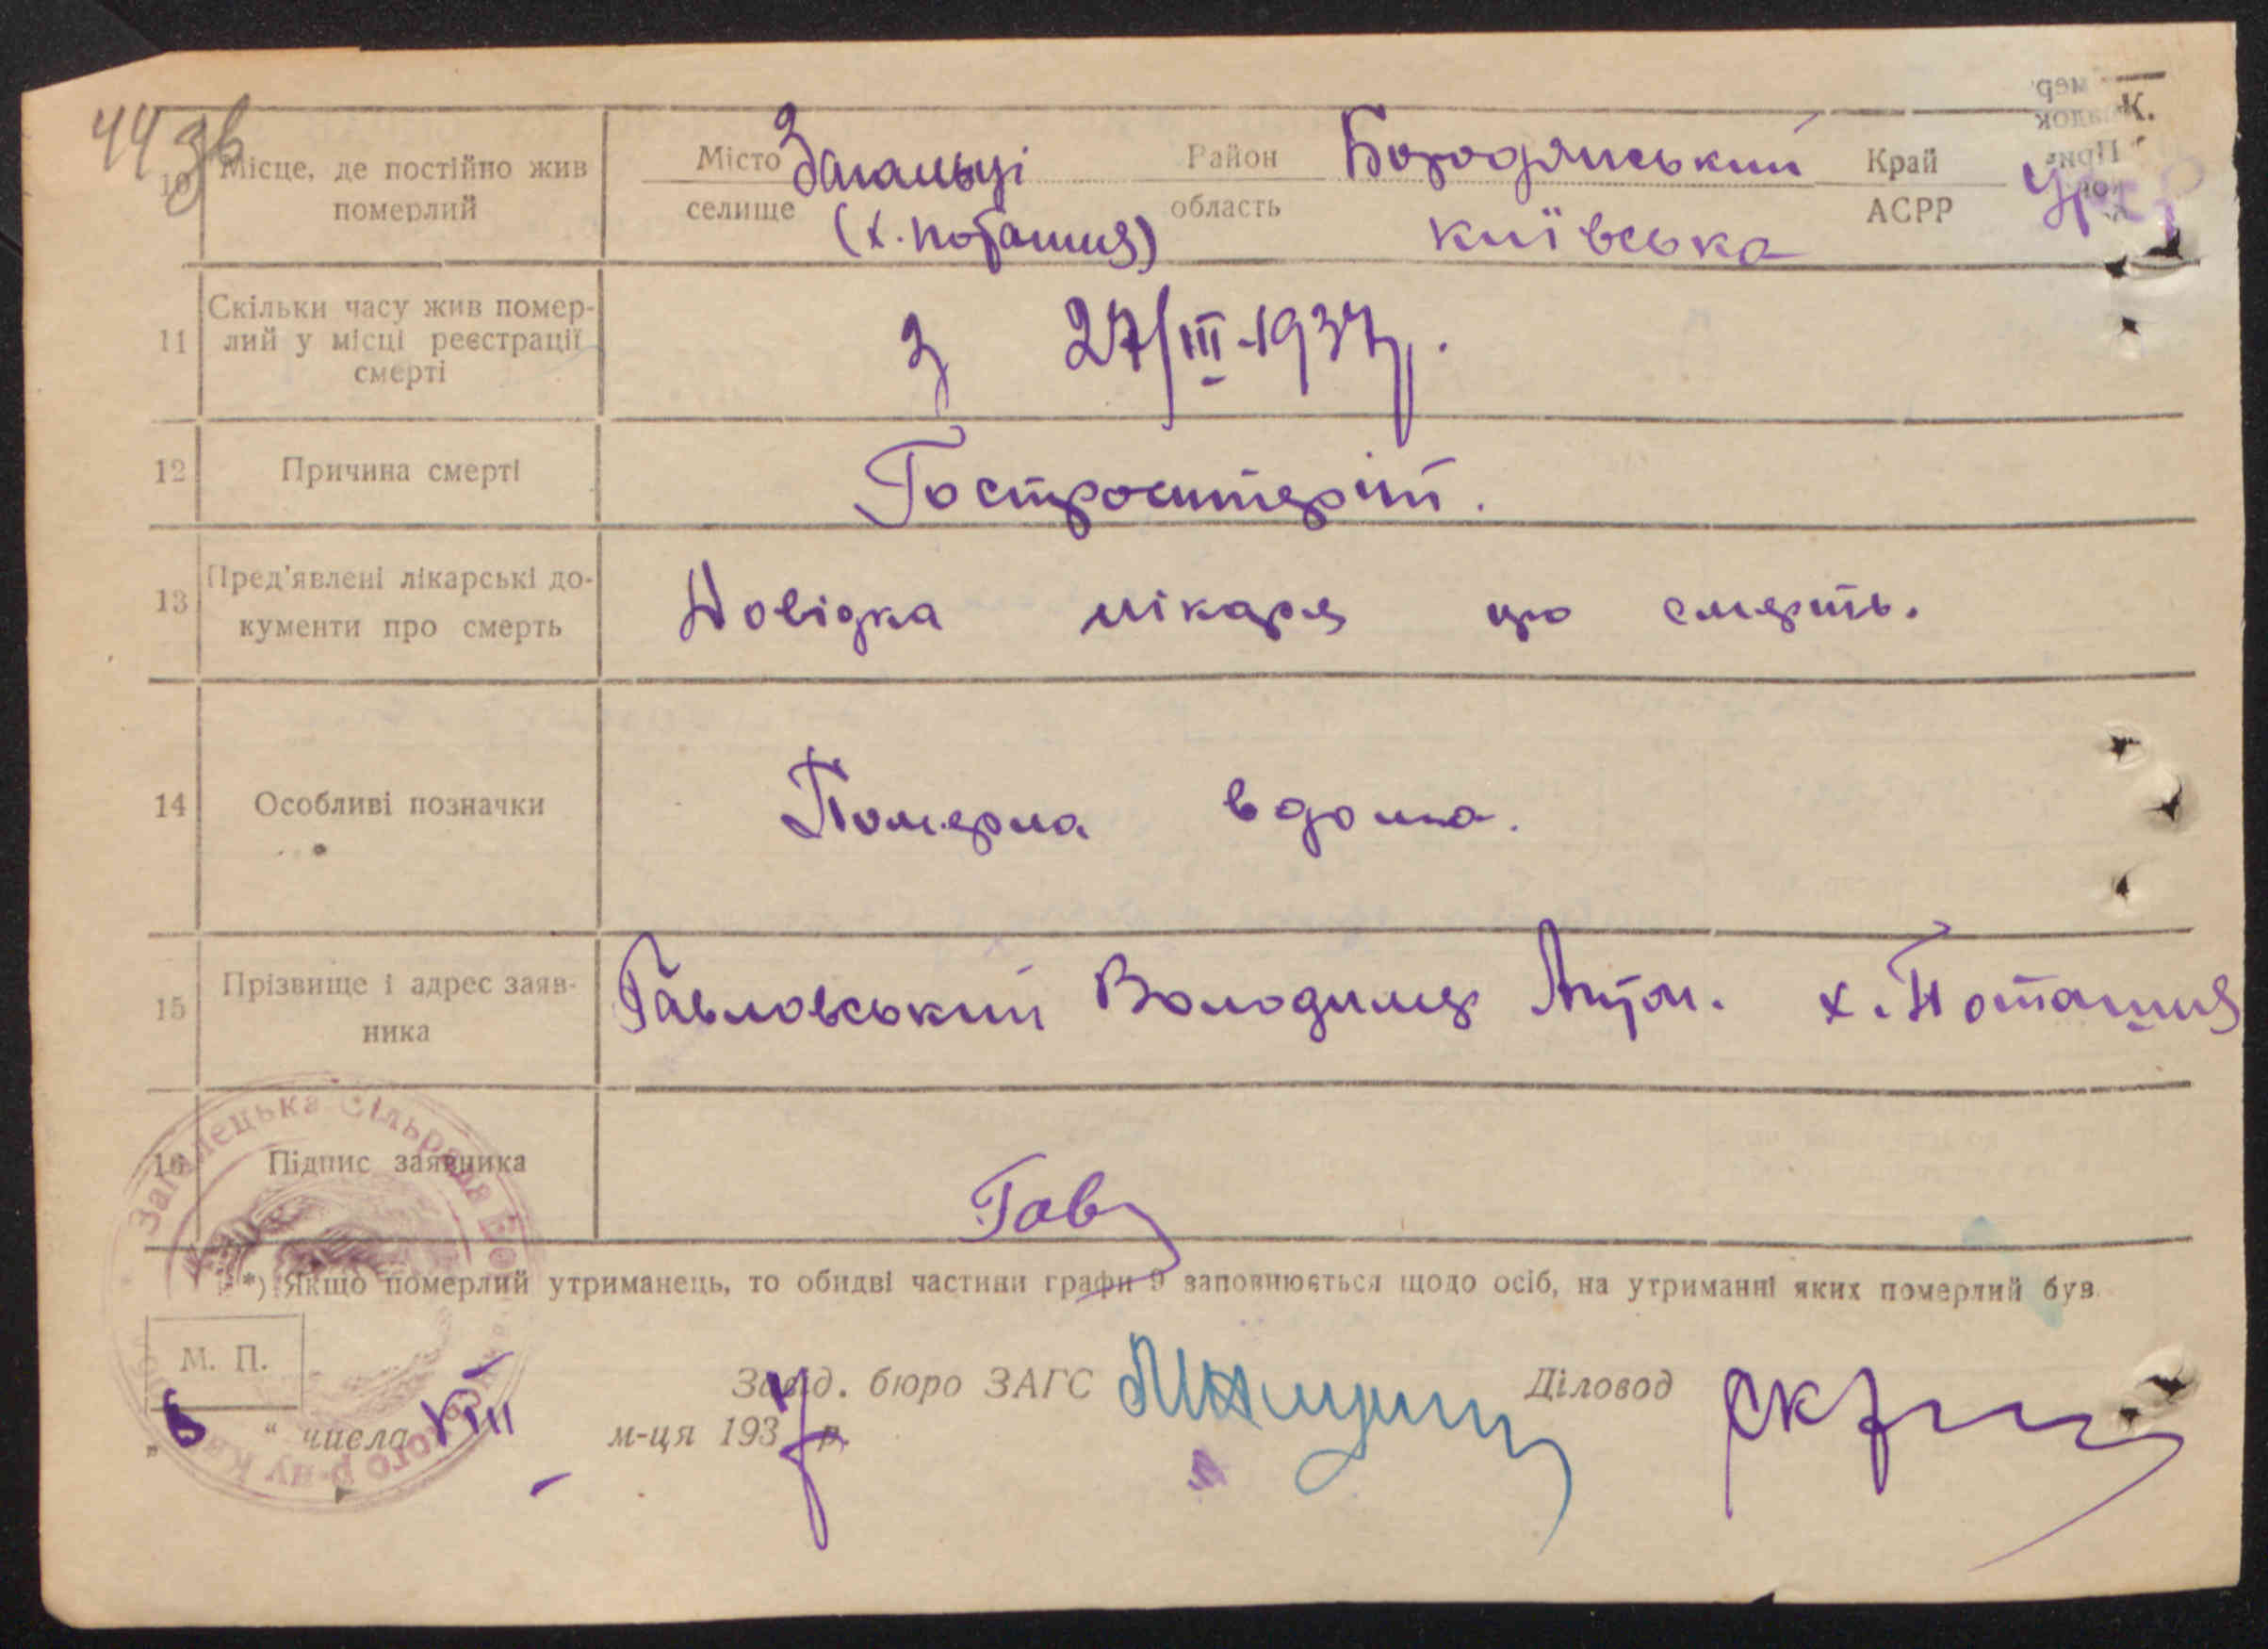 44 зв
10 Місце, де постійно жив померлий
Місто селище Загальці (х. Поташня) Район Бородянський область київська Край АСРР УРСР
11 Скільки часу жив помер-
лий у місці реєстрації
смерті
З 27/III-1937 р.
12 Причина смерті
Гостроентеріт.
13 Пред'явлені лікарські до-
кументи про смерть
Довідка лікаря про смерть.
14 Особливі позначки
Померла вдома.
15 Прізвище і адрес заяв-
ника
Гавловський Володимир Антон. х. Поташня
16 Підпис заявника
Гав
*) Якщо померлий утриманець, то обидві частини графи 9 заповнюється щодо осіб, на утриманні яких померлий був.
М. П.
Завід. бюро ЗАГС Діловод
„6“ числа VIII м-ця 1937 р.
Загалецька Сільрада